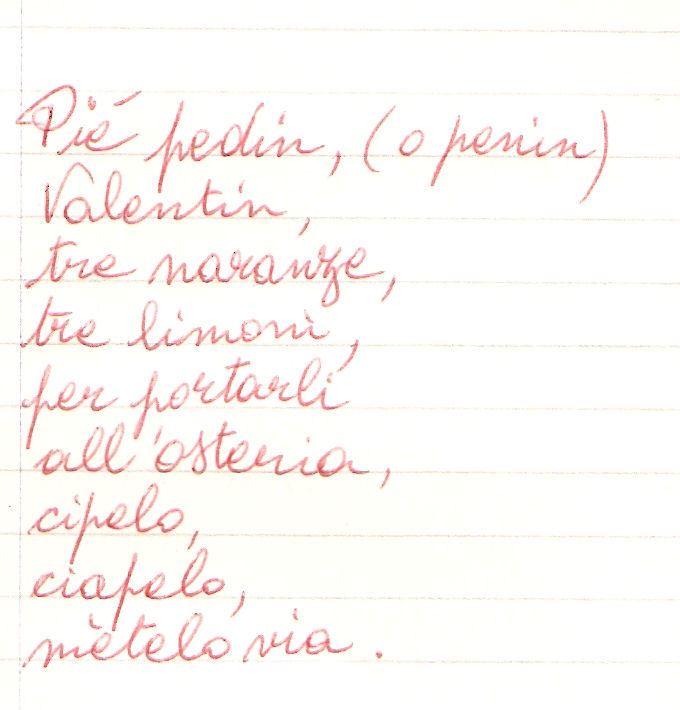 Pié pedin, (o penin)
Valentin,
tre naranze,
tre limoni,
per portarli
all'osteria,
cipelo,
ciapelo,
mètelo via.